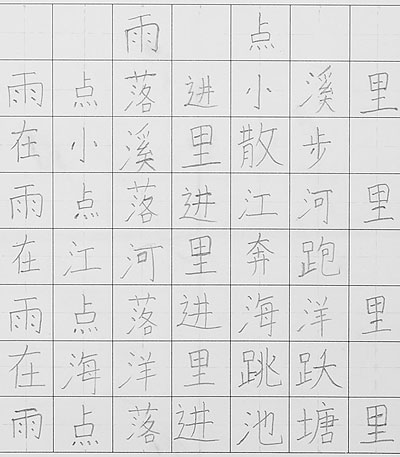 雨点
雨点落进小溪里
在小溪里散步
雨点落进江河里
在江河里奔跑
雨点落进海洋里
在海洋里跳跃
雨点落进池塘里